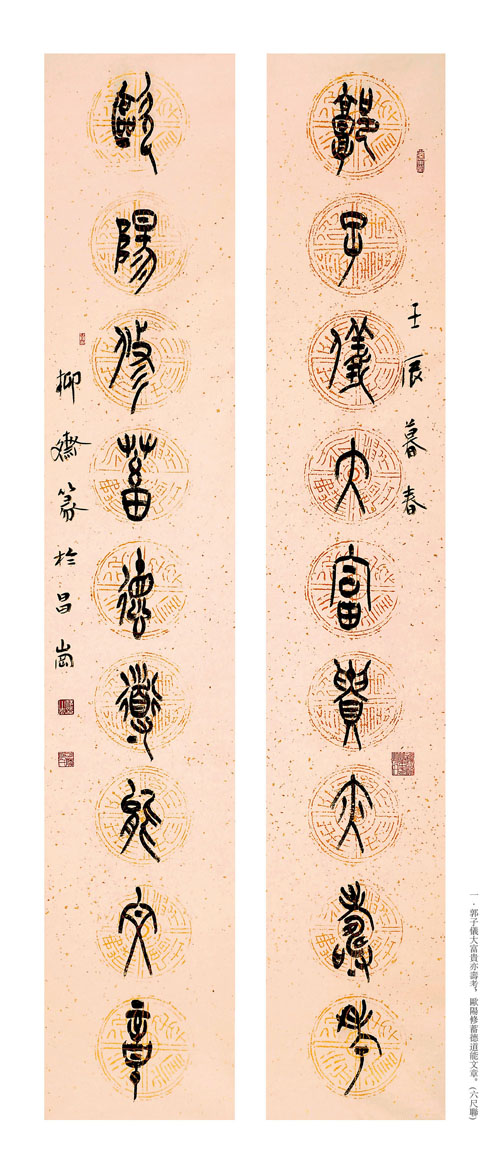 壬辰暮春
郭子儀大富貴亦壽考
歐陽修蓄德道能文章
柳齋篆於昌崗
一·郭子儀大富貴亦壽考，歐陽修蓄德道能文章。(六尺聯)